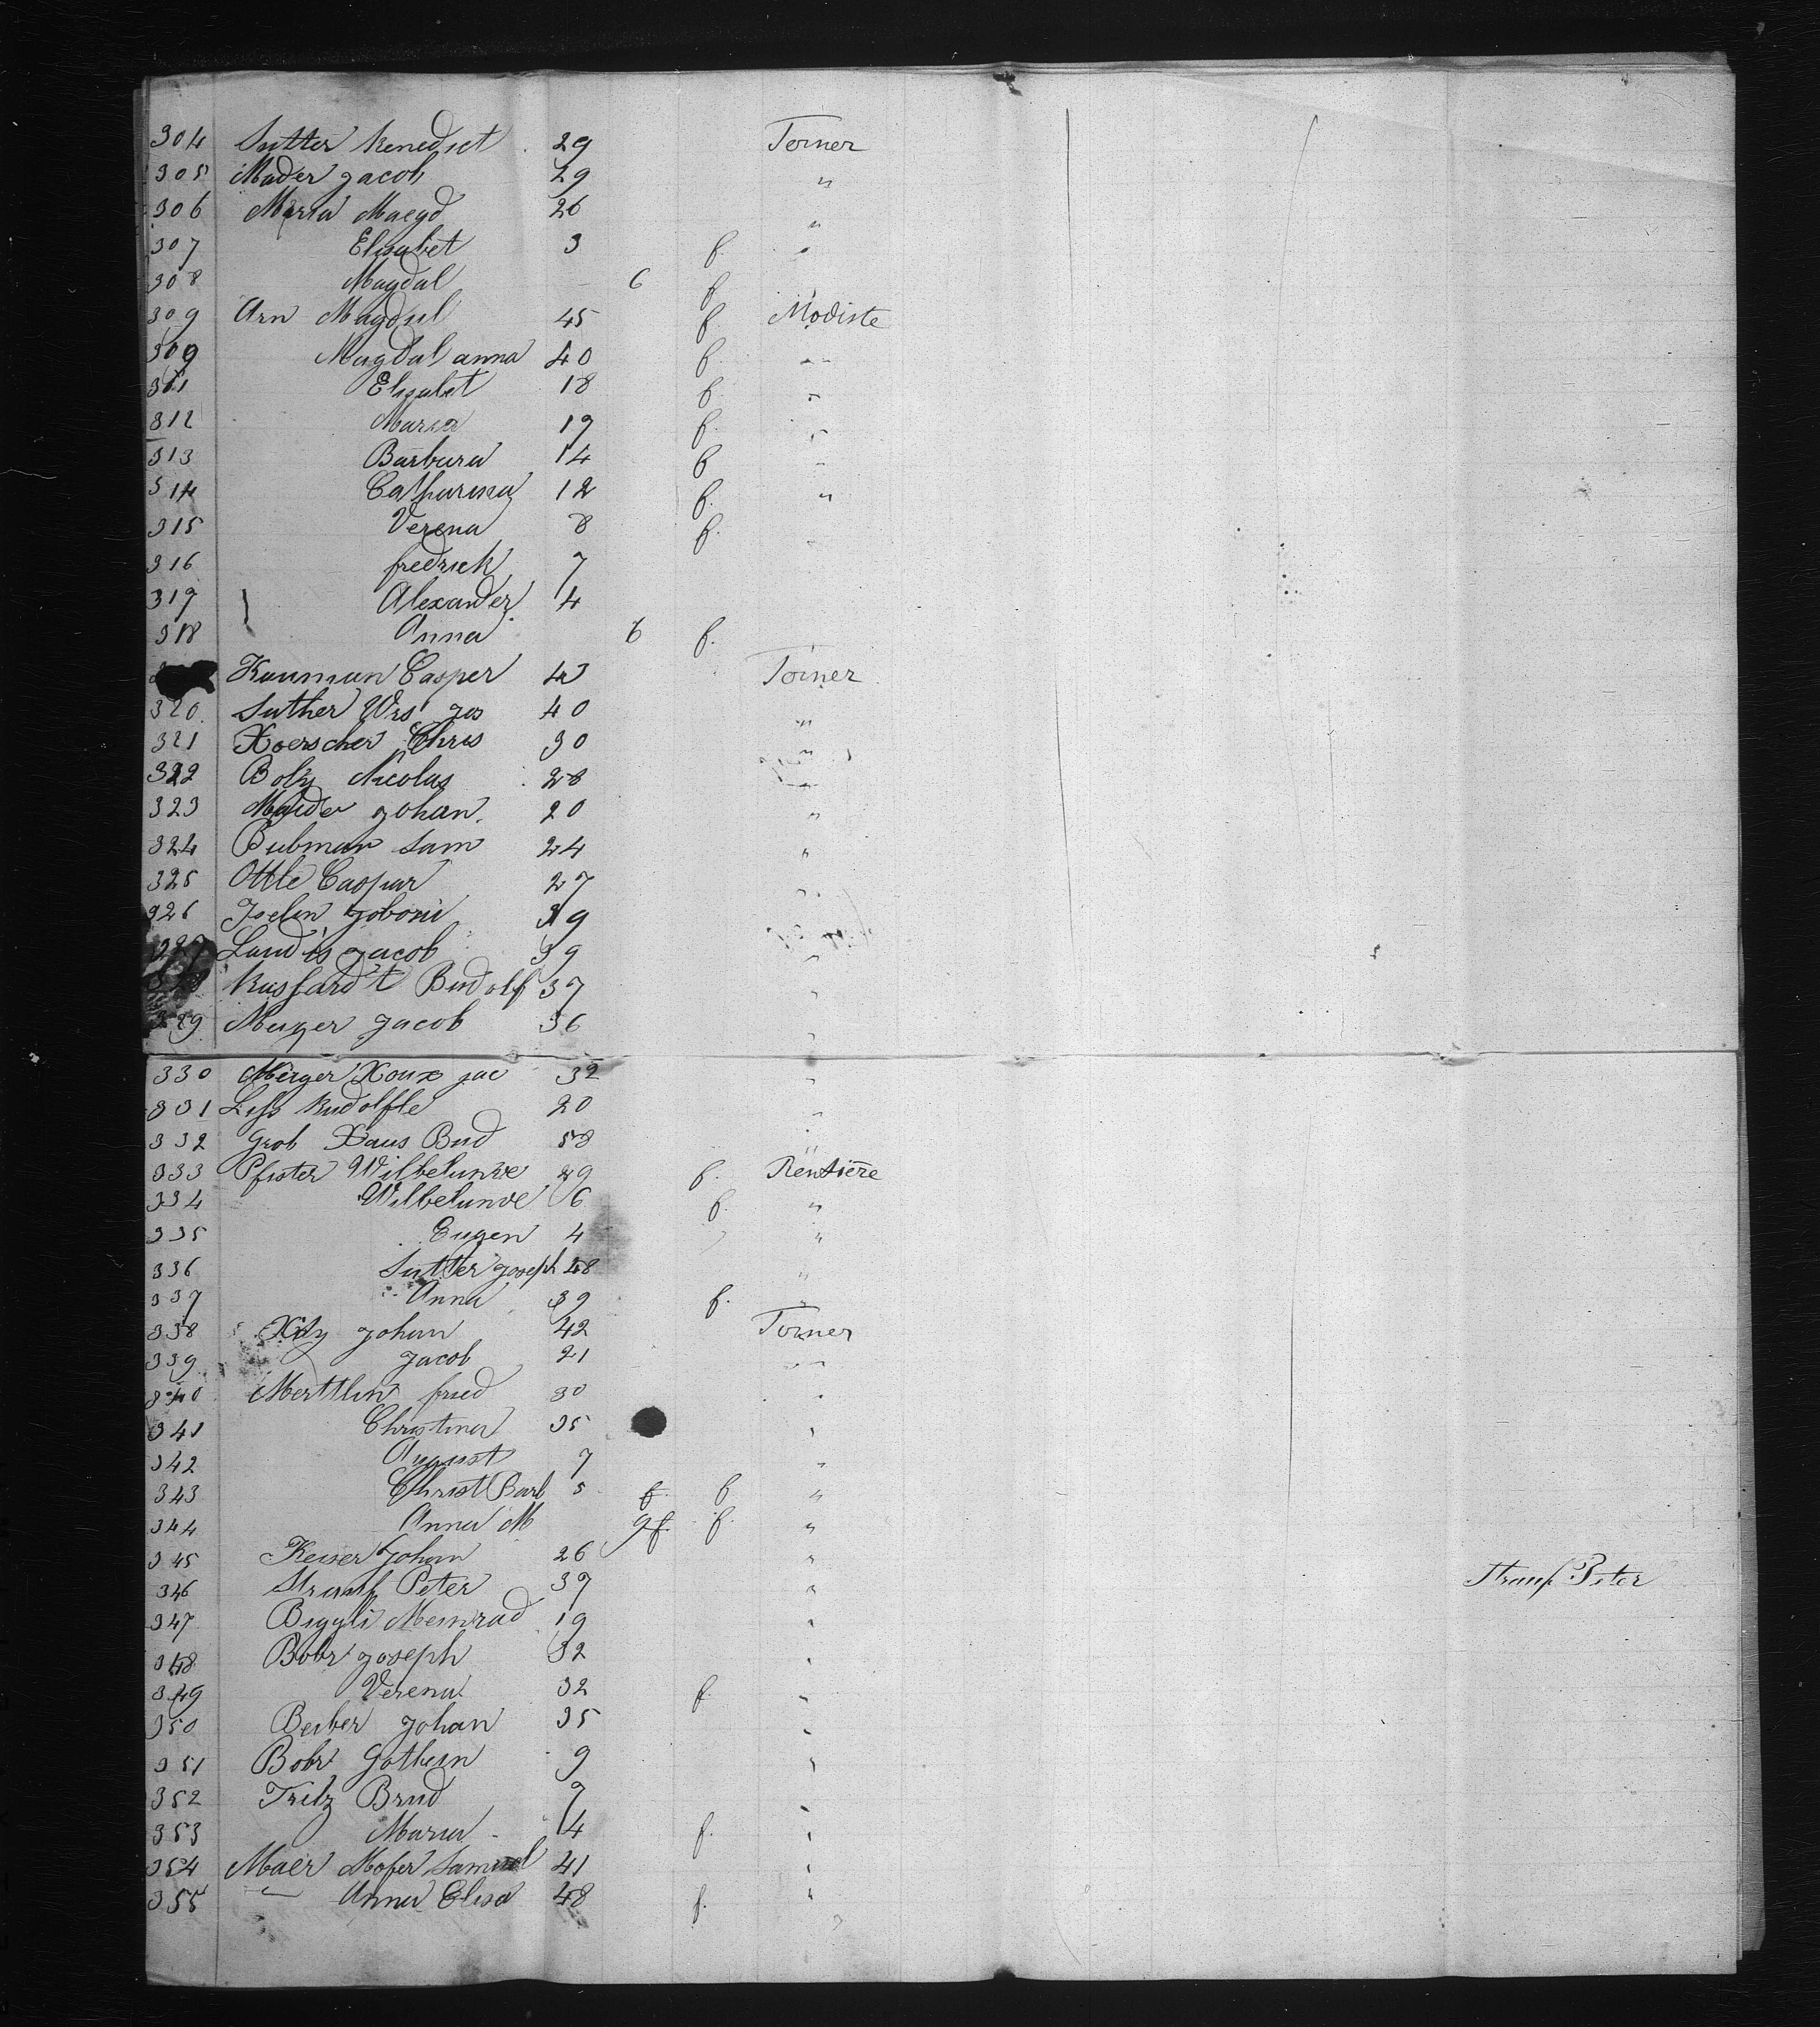 304 Sutter Benedict 29 Torner
305 Mader Jacob 29 "
306 Maria Magd 26 "
307 Elisabet 3 f. "
308 Magdal 6 f.
309 Arn Magdal 45 f. Modiste
309 Magdal anna 40 f. "
311 Elisabet 18 f. "
312 Maria 19 f. "
313 Barbara 14 f "
314 Catharina 12 f. "
315 Verena 8 f.
316 fredrick 7
317 Alexander 4
318 Anna 6 f.
Kauman Casper 43 Torner
320 Suther Urs Jos 40 "
321 Hoerscher Chris 30 "
322 Boly Nicolas 28 "
323 Mader Johan 20 "
324 Bubman Sam 24 "
325 Ottle Caspar 27 "
326 Iselin 39
327 Landis Jacob 39 "
328 Rudolf 37 "
329 Meyer Jacob 36 "
330 Meiger Jac 32 "
331 Rudolfle 20 "
332 Grob Haus Rud 58 "
333 Pfister Wilhelmine 29 f. Rentière
334 Wilhelmine 6 f. "
335 Eugen 4 "
336 Sutter Joseph 48 "
337 Anna 39 f. "
338 Johan 42 Torner
339 Jacob 21 "
340 Merttlin fried 30 "
341 Christina 35 "
342 August 7 "
343 Christ Barb 5 f. f "
344 Anna M 9 f. f. "
345 Keiser Johan 26 "
346 Peter 37 " Peter
347 Biggli Meinrad 19 "
348 Bohr Joseph 32 "
349 Verena 32 f. "
350 Beiber Johan 35 "
351 Bohr Gotthein 9 "
352 Fritz Brud 7 "
353 Maria 4 f. "
354 Maer Mofer Samuel 41 "
355 " Anna Elisa 48 f. "